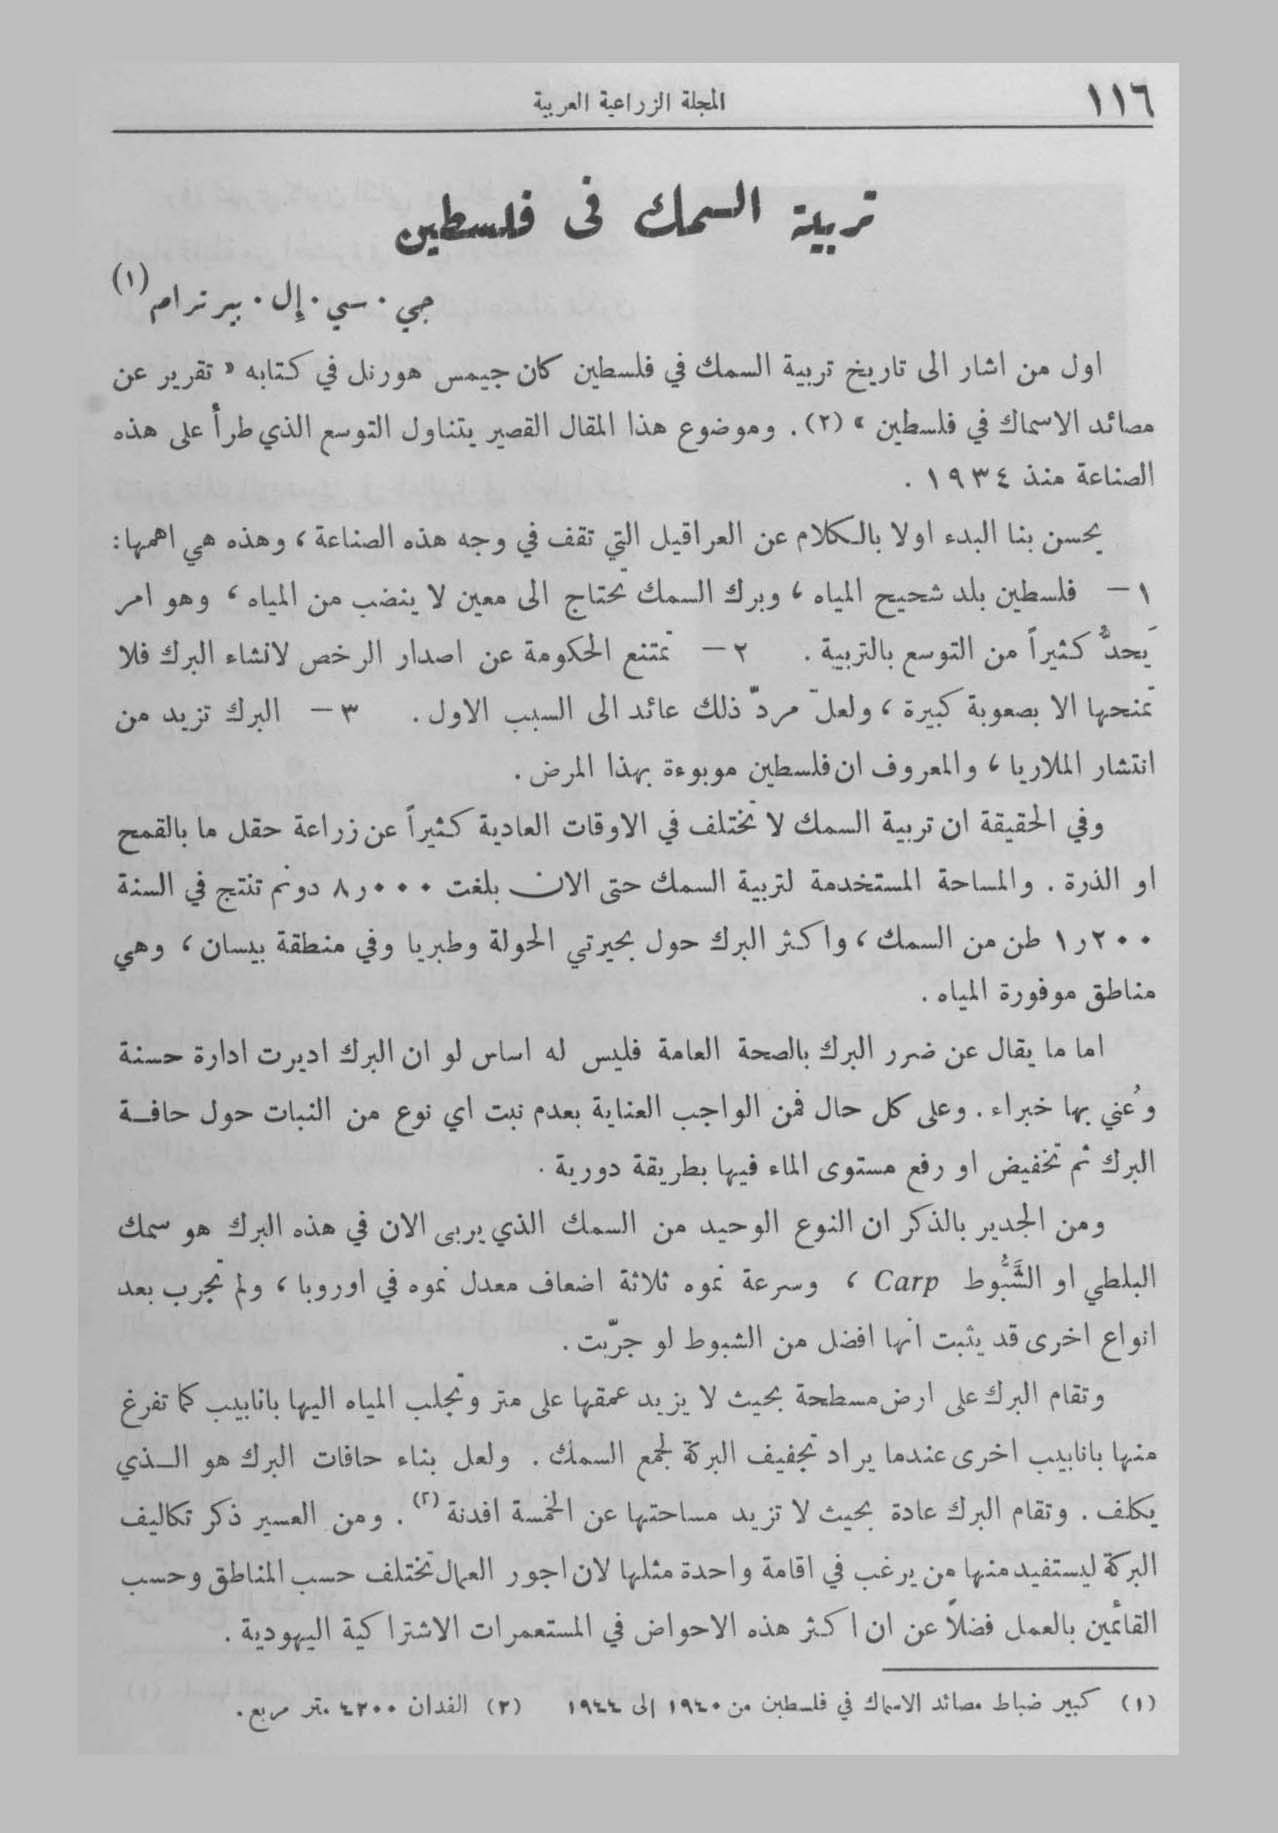 ١١٦
المجلة الزراعية العربية
تربية السمك في فلسطين
جي . سي . إل . بيرترام (١)
اول من اشار الى تاريخ تربية السمك في فلسطين كان جيمس هورنل في كتابه « تقرير عن
مصائد الاسماك في فلسطين » (٢) . وموضوع هذا المقال القصير يتناول التوسع الذي طرأ على هذه
الصناعة منذ ١٩٣٤ .
يحسن بنا البدء اولا بالكلام عن العراقيل التي تقف في وجه هذه الصناعة ، وهذه هي اهمها :
١ – فلسطين بلد شحيح المياه ، وبرك السمك تحتاج الى معين لا ينضب من المياه ، وهو امر
يَحدُّ كثيراً من التوسع بالتربية . ٢ – تمتنع الحكومة عن اصدار الرخص لانشاء البرك فلا
تمنحها الا بصعوبة كبيرة ، ولعلّ مردّ ذلك عائد الى السبب الاول . ٣ – البرك تزيد من
انتشار الملاريا ، والمعروف ان فلسطين موبوءة بهذا المرض .
وفي الحقيقة ان تربية السمك لا تختلف في الاوقات العادية كثيراً عن زراعة حقل ما بالقمح
او الذرة . والمساحة المستخدمة لتربية السمك حتى الان بلغت ٨٫٠٠٠ دونم تنتج في السنة
١٫٢٠٠ طن من السمك ، واكثر البرك حول بحيرتي الحولة وطبريا وفي منطقة بيسان ، وهي
مناطق موفورة المياه .
اما ما يقال عن ضرر البرك بالصحة العامة فليس له اساس لو ان البرك اديرت ادارة حسنة
وعُني بها خبراء . وعلى كل حال فمن الواجب العناية بعدم نبت اي نوع من النبات حول حافـة
البرك ثم تخفيض او رفع مستوى الماء فيها بطريقة دورية .
ومن الجدير بالذكر ان النوع الوحيد من السمك الذي يربى الان في هذه البرك هو سمك
البلطي او الشَّبُّوط Carp ، وسرعة نموه ثلاثة اضعاف معدل نموه في اوروبا ، ولم تجرب بعد
انواع اخرى قد يثبت انها افضل من الشبوط لو جرّبت .
وتقام البرك على ارض مسطحة بحيث لا يزيد عمقها على متر وتجلب المياه اليها بانابيب كما تفرغ
منها بانابيب اخرى عندما يراد تجفيف البركة لجمع السمك . ولعل بناء حافات البرك هو الـذي
يكلف . وتقام البرك عادة بحيث لا تزيد مساحتها عن الخمسة افدنة (٢) . ومن العسير ذكر تكاليف
البركة ليستفيد منها من يرغب في اقامة واحدة مثلها لان اجور العمال تختلف حسب المناطق وحسب
القائمين بالعمل فضلاً عن ان اكثر هذه الاحواض في المستعمرات الاشتراكية اليهودية .
(١) كبير ضباط مصائد الاسماك في فلسطين من ١٩٤٠ الى ١٩٤٤ (٢) الفدان ٤٢٠٠ متر مربع .